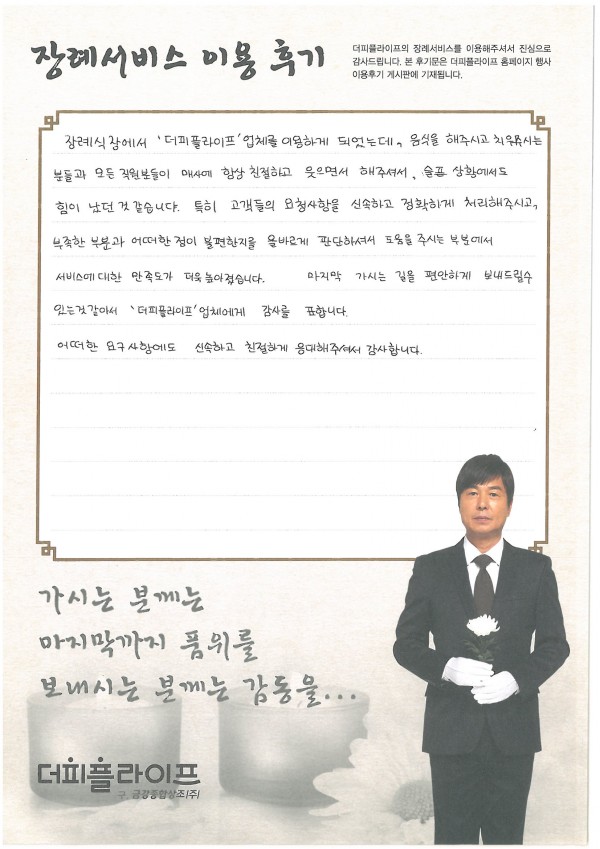 장례서비스 이용 후기
더피플라이프의 장례서비스를 이용해주셔서 진심으로
감사드립니다. 본 후기문은 더피플라이프 홈페이지 행사
이용후기 게시판에 기재됩니다.
장례식장에서 '더피플라이프' 업체를 이용하게 되었는데, 음식을 해주시고 치워주시는
분들과 모든 직원분들이 매사에 항상 친절하고 웃으면서 해주셔서, 슬픈 상황에서도
힘이 났던 것 같습니다. 특히 고객들의 요청사항을 신속하고 정확하게 처리해주시고,
부족한 부분과 어떠한 점이 불편한지를 올바르게 판단하셔서 도움을 주시는 부분에서
서비스에 대한 만족도가 더욱 높아졌습니다. 마지막 가시는 길을 편안하게 보내드릴수
있는것같아서 '더피플라이프' 업체에게 감사를 표합니다.
어떠한 요구사항에도 신속하고 친절하게 응대해주셔서 감사합니다.
가시는 분께는
마지막까지 품위를
보내시는 분께는 감동을...
더피플라이프
구. 금강종합상조(주)